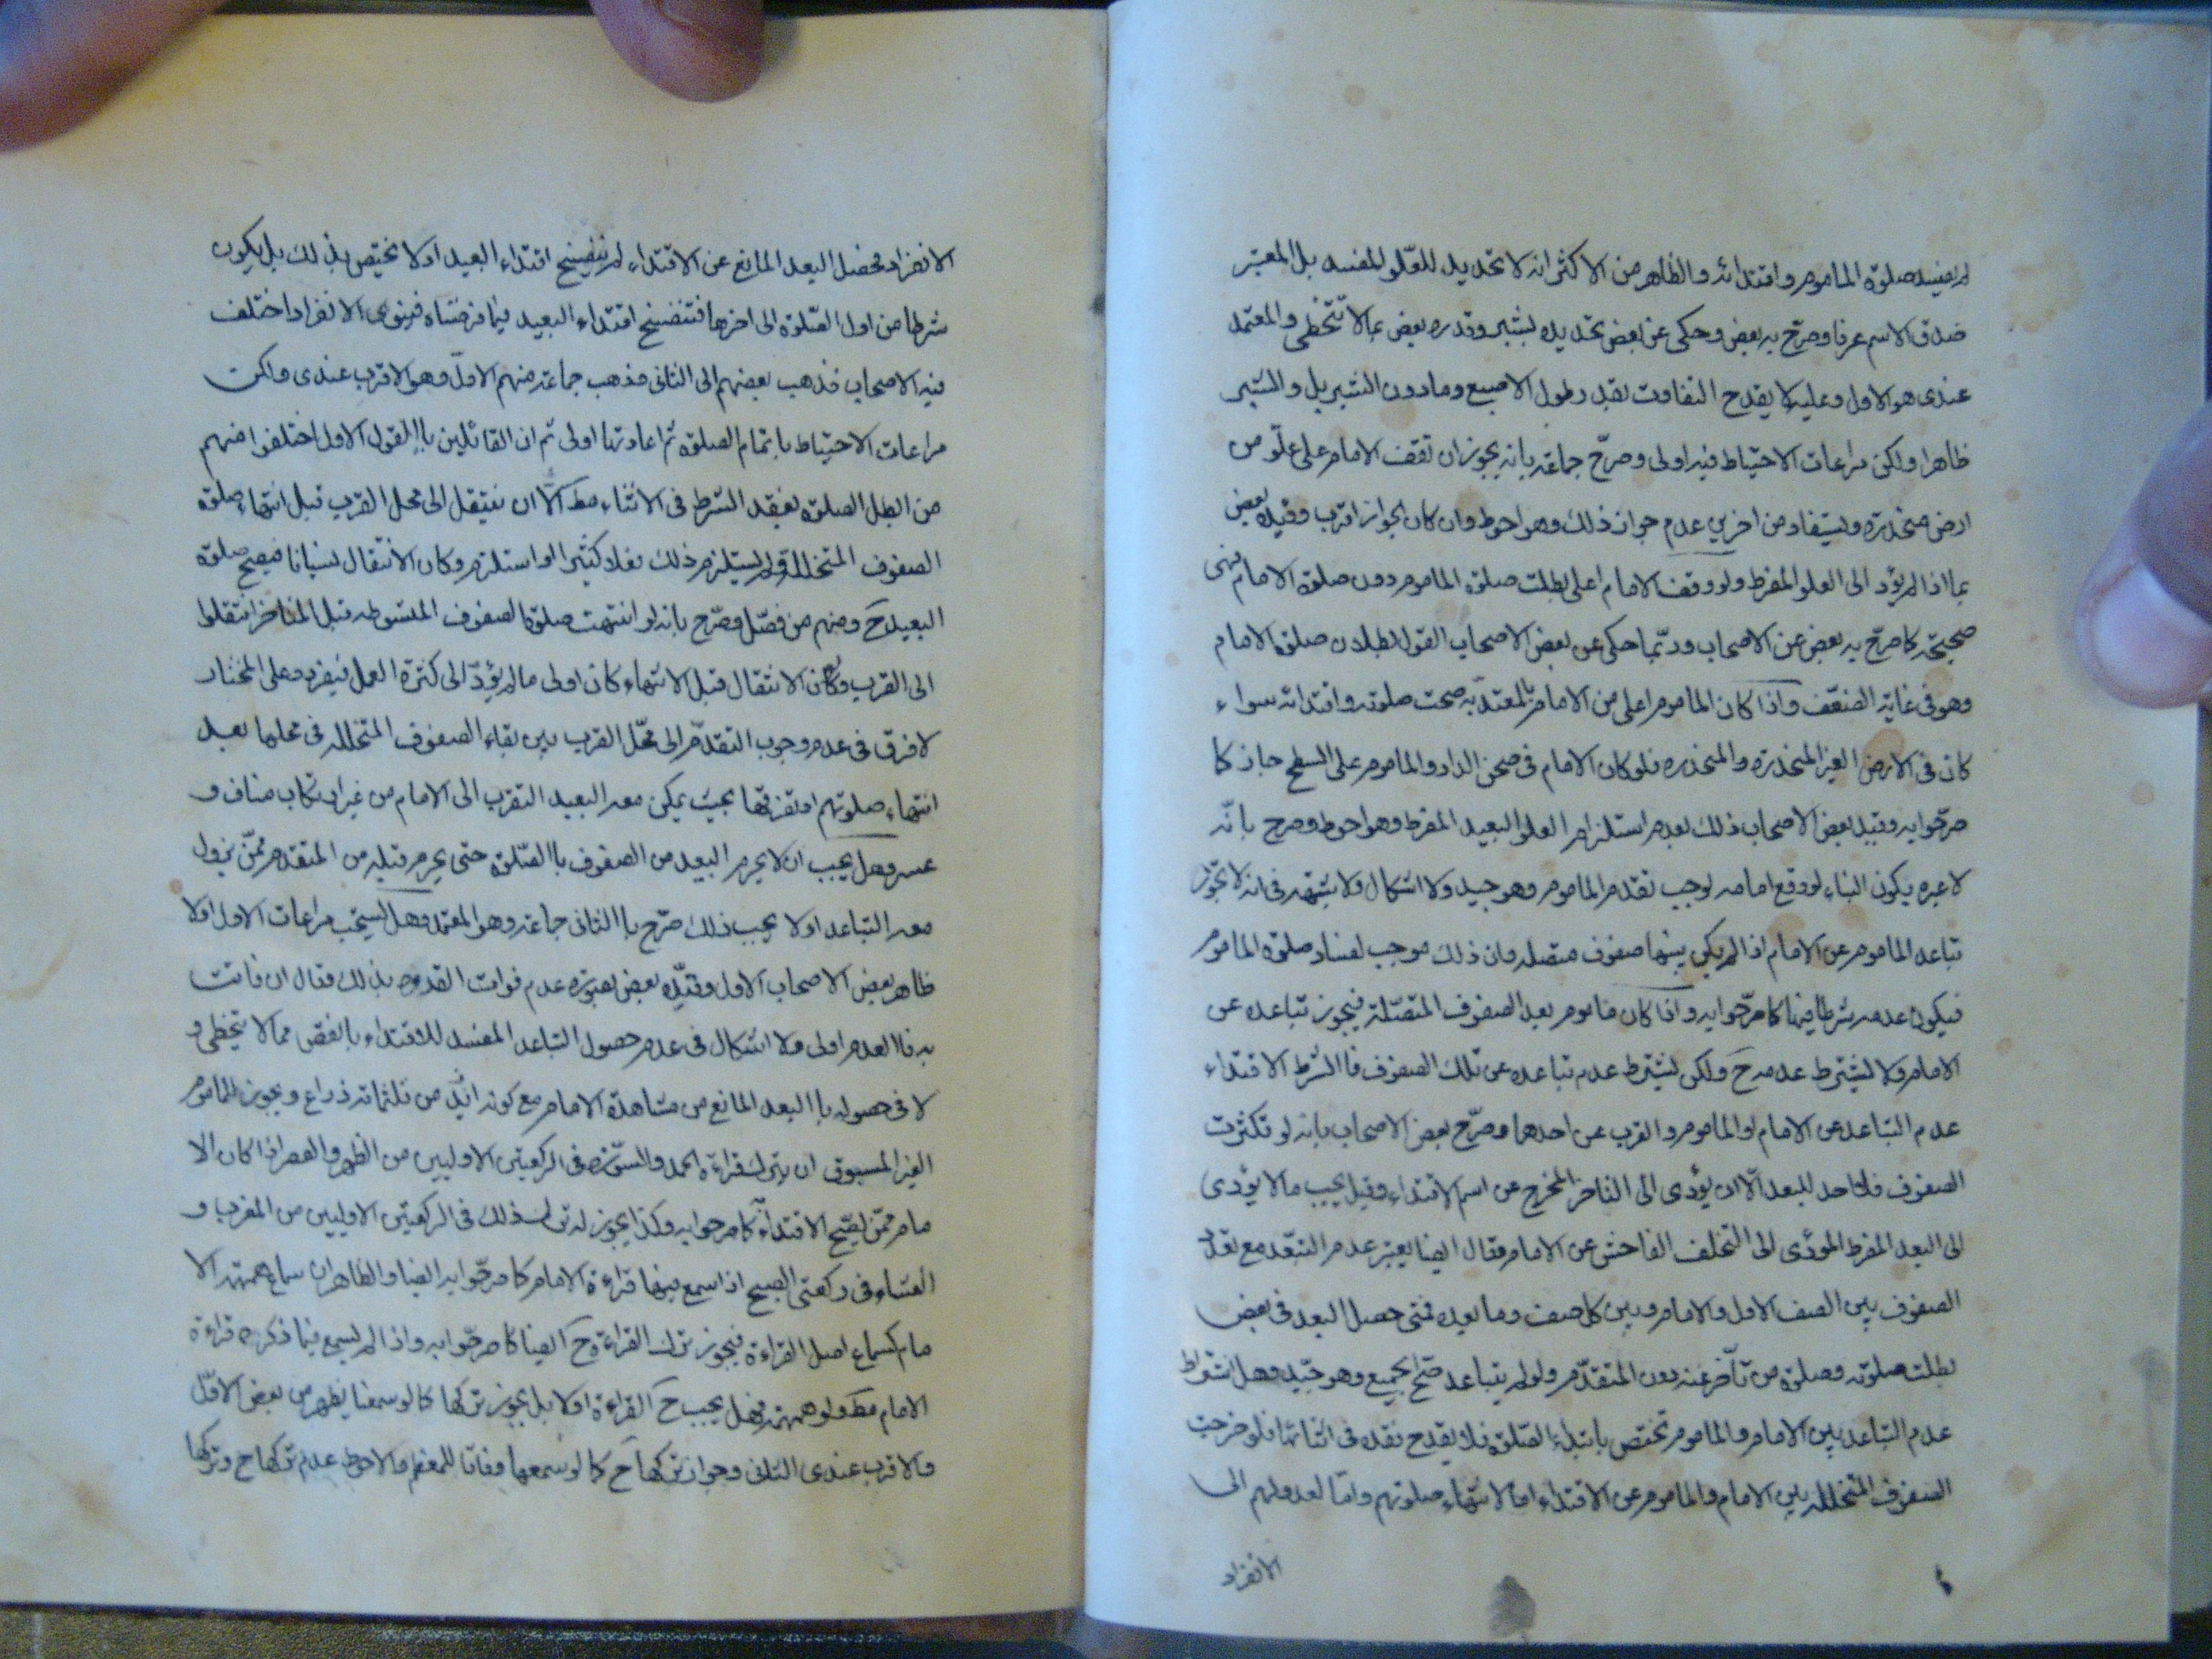 لم يفسد صلوة الماموم واقتدائه والظاهر من الاكثر انه لا تحديد للعلّو المفسد بل المعتبر
صدق الاسم عرفا وصرّح به بعض وحكى عن بعض تحديده بشبر وقدره بعض بما لا يتخطى والمعتمد
عندى هو الاول وعليه لا يقدح التفاوت بقدر طول الاصبع وما دون الشبر بل والشبر
ظاهرا ولكن مراعات الاحتياط فيه اولى وصرّح جماعة بانه يجوز ان تقف الامام على علّو من
ارض منحدرة ويستفاد من اخرين عدم جواز ذلك وهو احوط وان كان الجواز اقرب وقيده بعض
بما اذا لم يؤد الى العلو المفرط ولو وقف الامام اعلى بطلت صلوة الماموم دون صلوة الامام فهى
صحيحة كما صرّح به بعض من الاصحاب وربّما حكى عن بعض الاصحاب القول ببطلان صلوة الامام
وهو فى غاية الضعف واذا كان الماموم اعلى من الامام بالمعتد به صحت صلوته واقتدائه سواء
كان فى الارض الغير المنحدرة والمنحدرة فلو كان الامام فى صحن الدار والماموم على السطح جاز كما
صرّحوا به وقيد بعض الاصحاب ذلك بعدم استلزام العلو البعيد المفرط وهو احوط وصرح بانّه
لا عبرة بكون البناء لو وقع امامه لوجب تقدم الماموم وهو جيد ولا اشكال ولا شبهه فى انه لا يجوز
تباعد الماموم عن الامام اذا لم يكن بينهما صفوف متصله وان ذلك موجب لفساد صلوة الماموم
فيكون عدمه شرطا فيها كما صرّحوا به واذا كان ماموم بعد الصفوف المتصّلة فيجوز تباعده عن
الامام ولا يشترط عدمه ح ولكن يشترط عدم تباعده عن تلك الصفوف فا الشرط الاقتداء
عدم التباعد عن الامام او الماموم والقرب من احدهما وصرّح بعض الاصحاب بانه لو تكثرت
الصفوف فلا حد للبعد الّا ان يؤدى الى التاخر المخرج عن اسم الاقتداء وقيل يجب ما لا يؤدى
الى البعد المفرط المؤدى الى التخلف الفاحش عن الامام وقال ايضا يعتبر عدم التبعّد مع تعدّد
الصفوف بين الصف الاول والامام وبين كل صف وما بعده فمتى حصل البعد فى بعض
بطلت صلوته وصلوة من تأخر عنه دون المتقدّم ولو لم يتباعد صّح الجميع وهو جيّد وهل اشتراط
عدم التباعد بين الامام والماموم تختص بابتداء الصّلوة فلا يقدح فقده فى اثنائها فلو خرجت
الصفوف المتخلله بين الامام والماموم عن الاقتداء اما لانتهاء صلوتهم وامّا لعدولهم الى
الانفراد
الانفراد فحصل البعد المانع عن الاقتداء لم ينفسخ اقتداء البعيد او لا تختص بذلك بل يكون
شرطا من اول الصّلوة الى اخرها فتنفسخ اقتداء البعيد فيما فرضناه فينوى الانفراد اختلف
فيه الاصحاب فذهب بعضهم الى الثانى وذهب جماعة منهم الاول وهو الاقرب عندى ولكن
مراعات الاحتياط باتمام الصلوة ثم اعادتها اولى ثم ان القائلين باالقول الاول اختلفوا فمنهم
من ابطل الصلوة بفقد الشرط فى الاثناء مط الّا ان ينتقل الى محل القرب قبل انتهاء صلوة
الصفوف المتخللة ولم يستلزم ذلك بعدا كثيرا او استلزم وكان الانتقال نسيانا فيصح صلوة
البعيد ح ومنهم من فصّل وصّرح بانه لو انتهت صلوة الصفوف المتسوطه قبل المتاخر انتقلوا
الى القرب وكان الانتقال قبل الانتهاء كان اولى ما لم يؤدّ الى كثرة العمل فيفرد وعلى المختار
لا فرق فى عدم وجوب التقدّم الى محّل القرب بين بقاء الصفوف المتخلله فى محلها بعد
انتهاء صلوتهم او تفرقها بحيث يمكن معه البعيد التقرب الى الامام من غير ارتكاب مناف و
عسر وهل يجب ان لا يحرم البعيد من الصفوف باالصّلوة حتى يحرم قبله من المتقدم ممّن يزول
معه التباعد او لا يجب ذلك صّرح باالثانى جماعة وهو المعتمد وهل يستحب مراعات الاول او لا
ظاهر بعض الاصحاب الاول وقيّده بعض بصورة عدم فوات القدوه بذلك فقال ان فاتت
به فا العدم اولى ولا اشكال فى عدم حصول التباعد المفسد للاقتداء بانقص مما لا يتخطى و
لا فى حصوله باالبعد المانع من مشاهدة الامام مع كونه ازيد من ثلثمائة ذراع ويجوز للماموم
الغير المسبوق ان يترك قراءة الحمد والسّورة فى الركعتين الاوليين من الظهر والعصر اذا كان الا
مام ممّن يصّح الاقتداء كما صرحوا به وكذا يجوز له ترك ذلك فى الركعتين الاوليين من المغرب و
العشاء وفى ركعتى الصبح اذا سمع فيها قراءة الامام كما صرّحوا به ايضا والظاهر ان سماع همهمة الا
مام كسماع اصل القراءة فيجوز ترك القراءة ح ايضا كما صرّحوا به واذا لم يسمع فيما ذكره قراءة
الامام مط ولو همهمة فهل يجب ح القراءة او لا بل يجوز تركها كما لو سمعنا يظهر من بعض الاوّل
والاقرب عندى الثانى وجواز تركها ح كما لو سمعها وفاقا للمعظم والاحوط عدم تركها ح وتركها